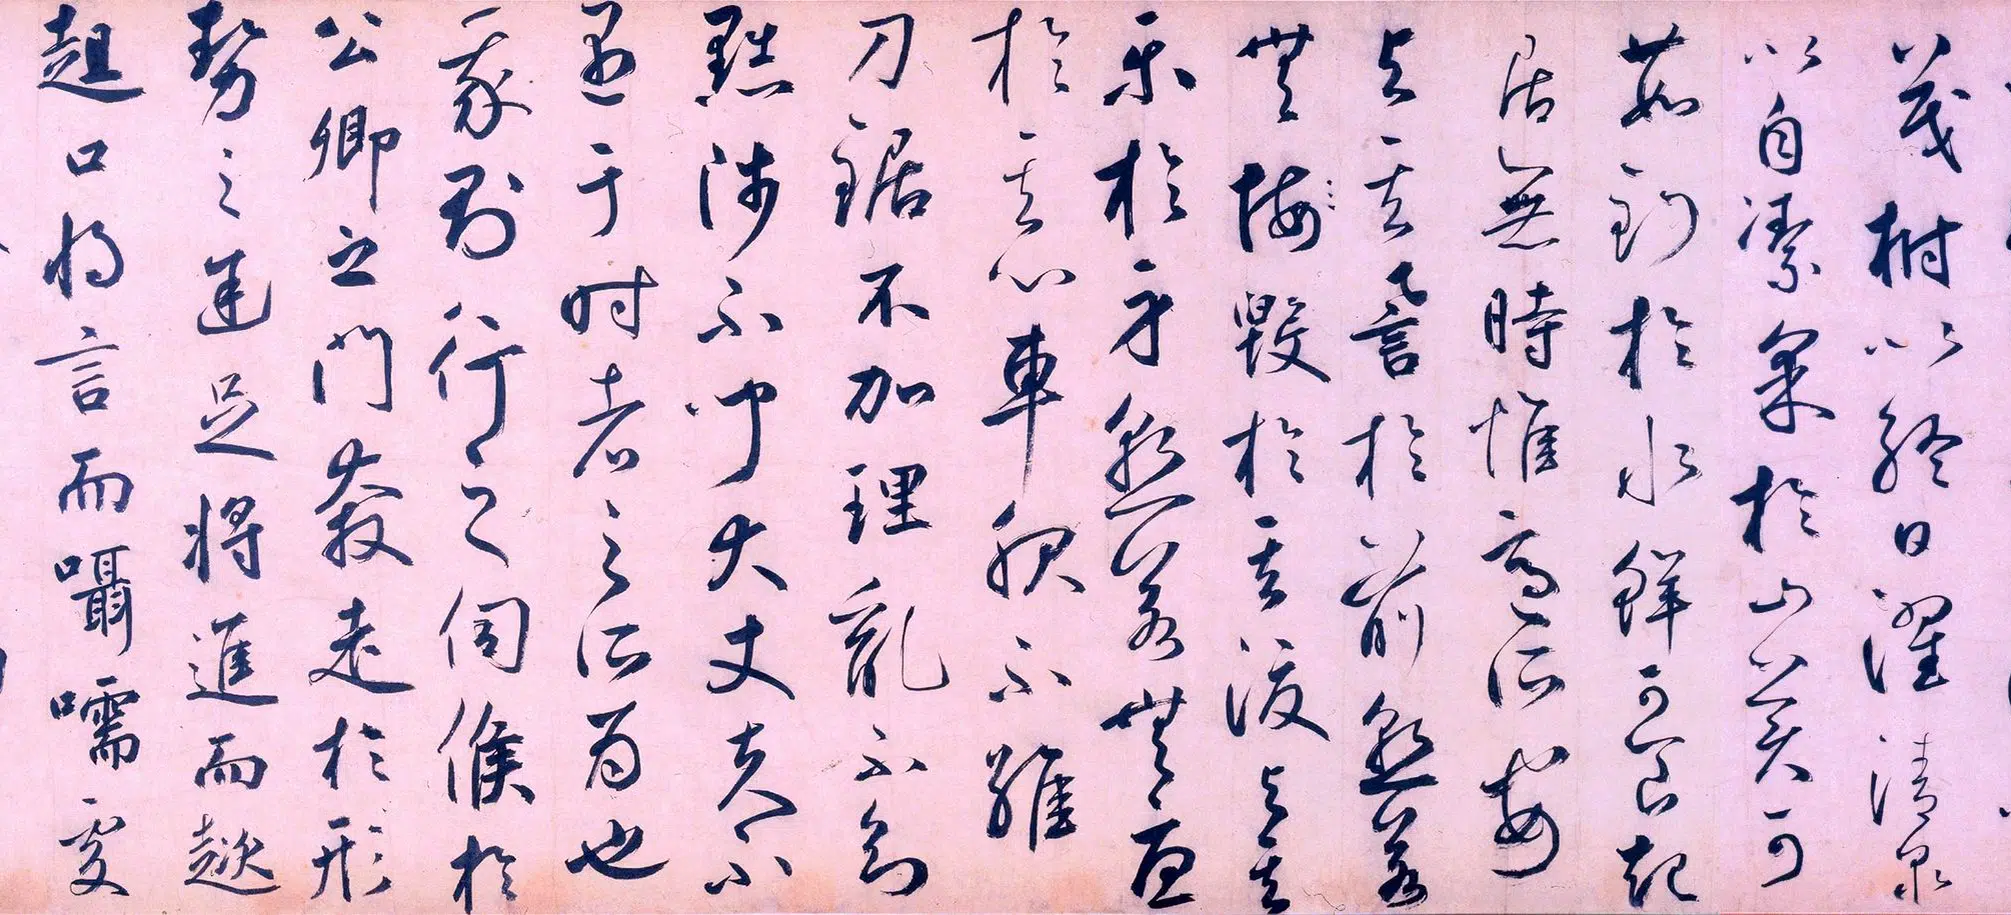 茂樹以終日濯清泉
以自潔采於山美可
茹釣於水鮮可食起
居無時惟適所安
與其譽於前孰若
無悔毀於其後與其
樂於身孰若無憂
於其心車服不維
刀鋸不加理亂不知
黜陟不聞大丈夫不
遇于時者之所為也
我則行之伺候於
公卿之門奔走於形
勢之途足將進而趑
趄口將言而囁嚅處